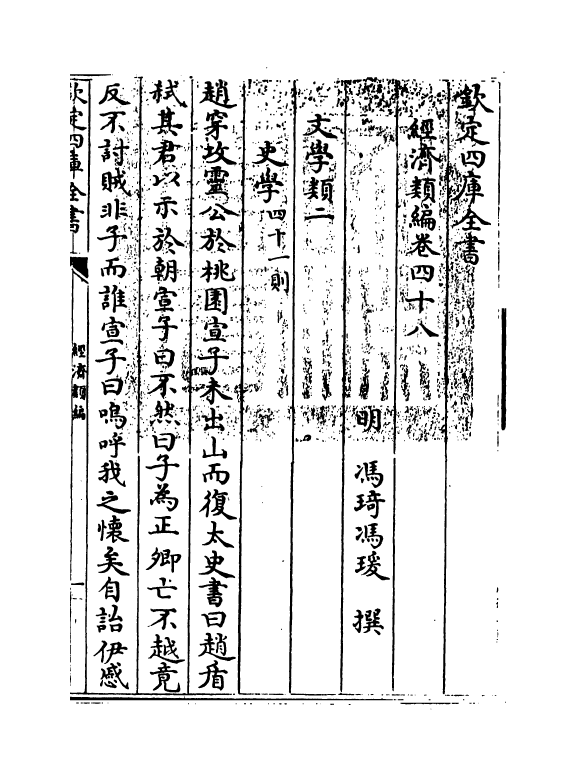 欽定四庫全書
經濟類編卷四十八
明　馮琦馮瑗　撰
文學類二
史學四十一則
趙穿攻靈公於桃園宣子未出山而復太史書曰趙盾
弑其君以示於朝宣子曰不然曰子為正卿亡不越竟
反不討賊非子而誰宣子曰嗚呼我之懷矣自詒伊慼
欽定四庫全書
經濟類編
一